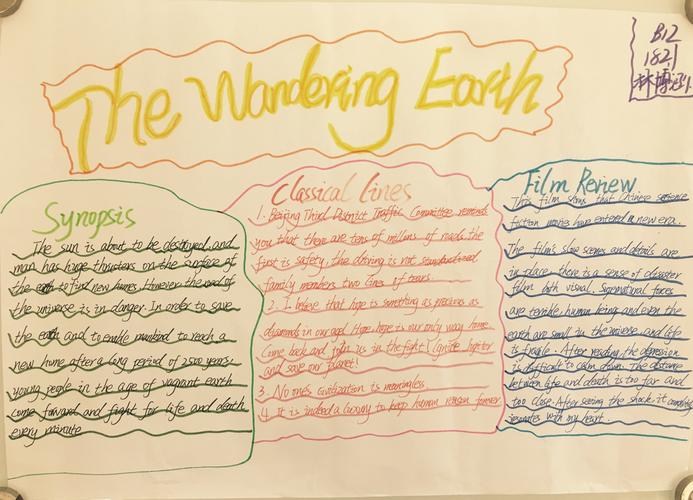 The Wandering Earth
B12
1821
林博
Synopsis
The sun is about to be destroyed, and
man has huge thrusters on the surface of
the earth to find new homes. However the road of
the universe is in danger. In order to save
the earth and to enable mankind to reach a
new home after a long period of 2500 years.
young people in the age of vagrant earth
come forward and fight for life and death
every minute
Classical Lines
1. Beijing Third District Traffic Committee reminds
you that there are tens of millions of roads. the
first is safety, the driving is not standardized
family members two lines of tears
2. I believe that hope is something as precious as
diamonds in our age. Hope. hope is our only way home.
Come back and join us in the fight! Ignite Jupiter
and save our planet!
3. No ones civilization is meaningless
4. It is indeed a luxury to keep human reason forever.
Film Review
This film shows that Chinese science
fiction movies have entered a new era.
The film's slow scenes and details are
in place. there is a sense of disaster
film both visual. Supernatural forces
are terrible, human being and even the
earth are small in the universe and life
is fragile. After reading, the depression
is difficult to calm down. The distance
between life and death is too far and
too close. After seeing the shock, it
resonates with my heart.